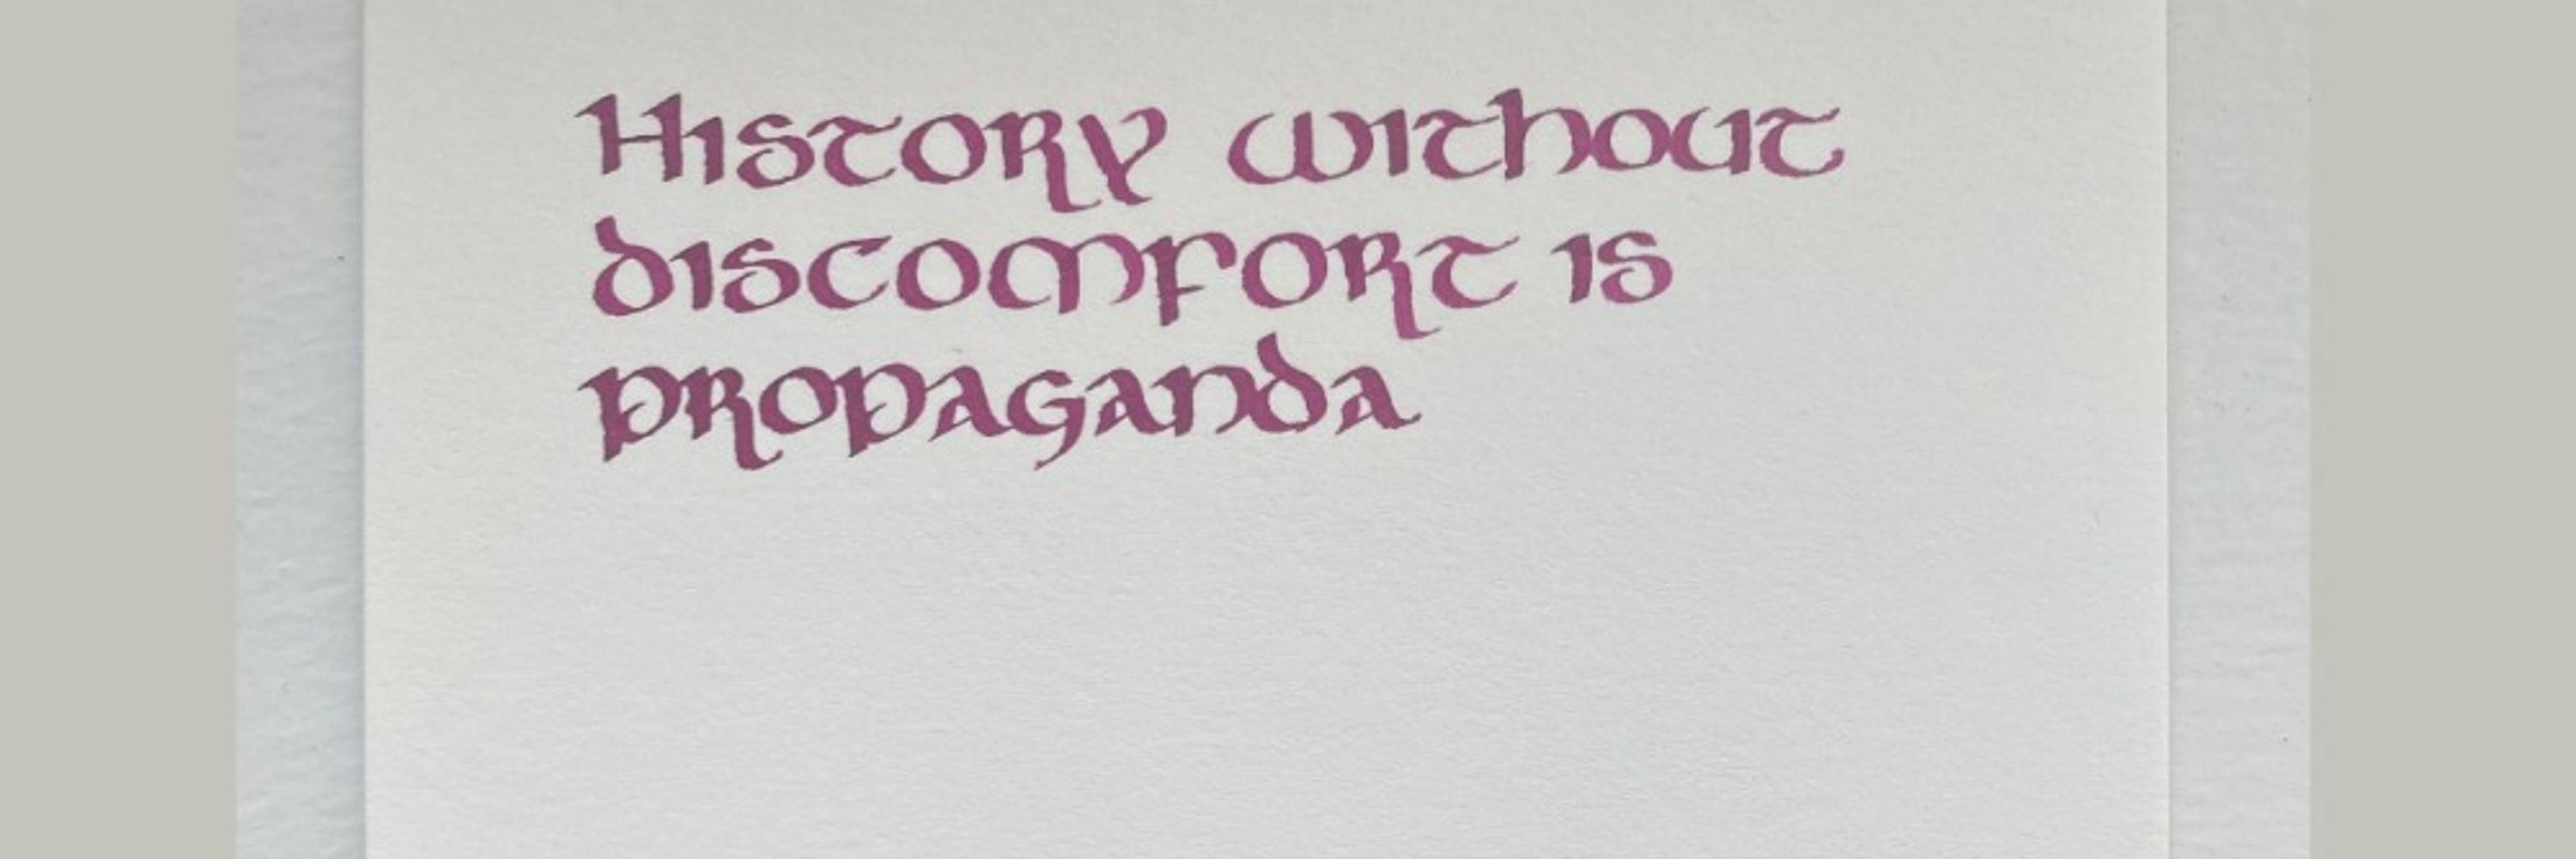 History without
discomfort is
propaganda